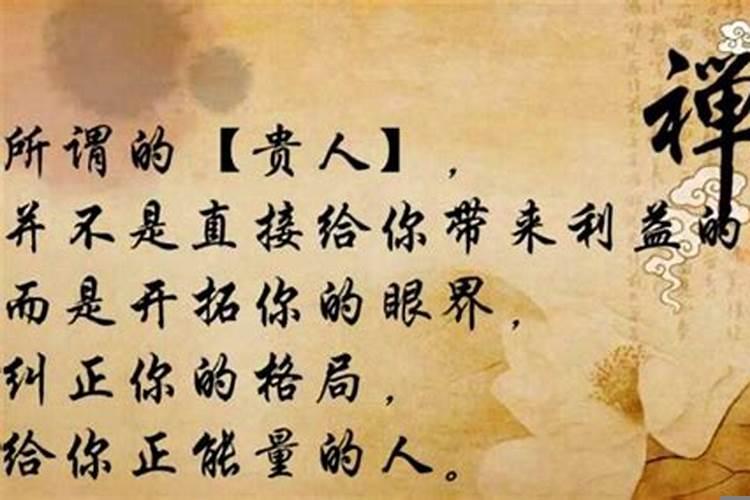 禅
所谓的【贵人】，
并不是直接给你带来利益的
而是开拓你的眼界，
纠正你的格局，
给你正能量的人。